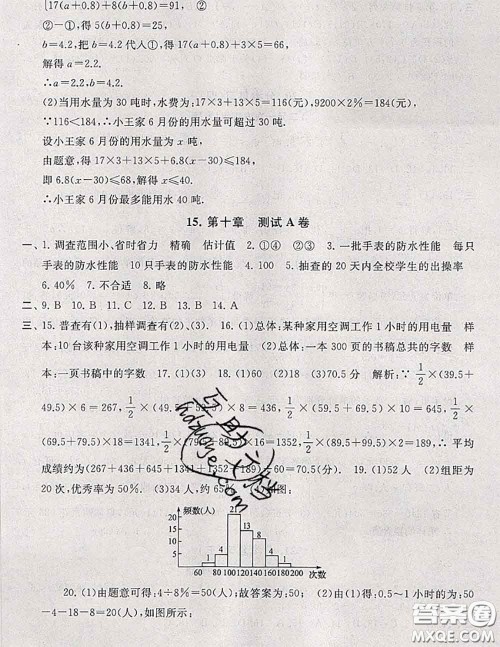 17(a+0.8)+8(b+0.8)=91, ②
②-①,得 5(b+0.8)=25,
b=4.2,把 b=4.2 代人①,得 17(a+0.8)+3×5=66,
解得 a=2.2.
∴a=2.2,b=4.2.
(2)当用水量为 30 吨时,水费为:17×3+13×5=116(元),9200×2%=184(元),
∵116<184,∴小王家 6 月份的用水量可超过 30 吨.
设小王家 6 月份的用水量为 x 吨,
由题意,得 17×3+13×5+6.8(x-30)≤184,
即 6.8(x-30)≤68,解得 x≤40.
∴小王家 6 月份最多能用水 40 吨.
15. 第十章 测试 A 卷
一、1. 调查范围小、省时省力 精确 估计值 2. ①④ ②③ 3. 一批手表的防水性能 每只
手表的防水性能 10 只手表的防水性能 4. 100 5. 抽查的 20 天内全校学生的出操率
6. 40% 7. 不合适 8. 略
二、9. B 10. B 11. C 12. B 13. B 14. A
三、15. 普查有(1),抽样调查有(2)、(3). 16. (1)总体:某种家用空调工作 1 小时的用电量 样
本:10 台该种家用空调工作 1 小时的用电量 (2)总体:一本 300 页的书稿总共的字数 样
本:一页书稿中的字数 17. (1)(3) 18. (1)60 (2)18 (3)70.5分 解析:∵1/2×(39.5+
49.5)×6=267,1/2×(49.5+59.5)×10=545,1/2×(59.5+69.5)×10=645,1/2×
(69.5+79.5)×18=1341,1/2×(79.5+89.5)×
1/2×(89.5+99.5)×2=189,∴平均
成绩约为(267+436+645+1341+1352+189)÷60=70.5(分). 19. (1)52人 (2)组距为
20 次,优秀率为 50%. (3)34 人,约 65% 如图:
频数(人)
20
15
10
5
1 4 21 13 11 4 1
60 80 100 120 140 160 180 200 次数
20. (1)由题意可得:4÷8%=50(人);故答案为:50; (2)由(1)得:0.5~1 小时的为:50
-4-18-8=20(人),如图所示:
互助文档
hdzuoye.com
答案圈
MXQE.COM